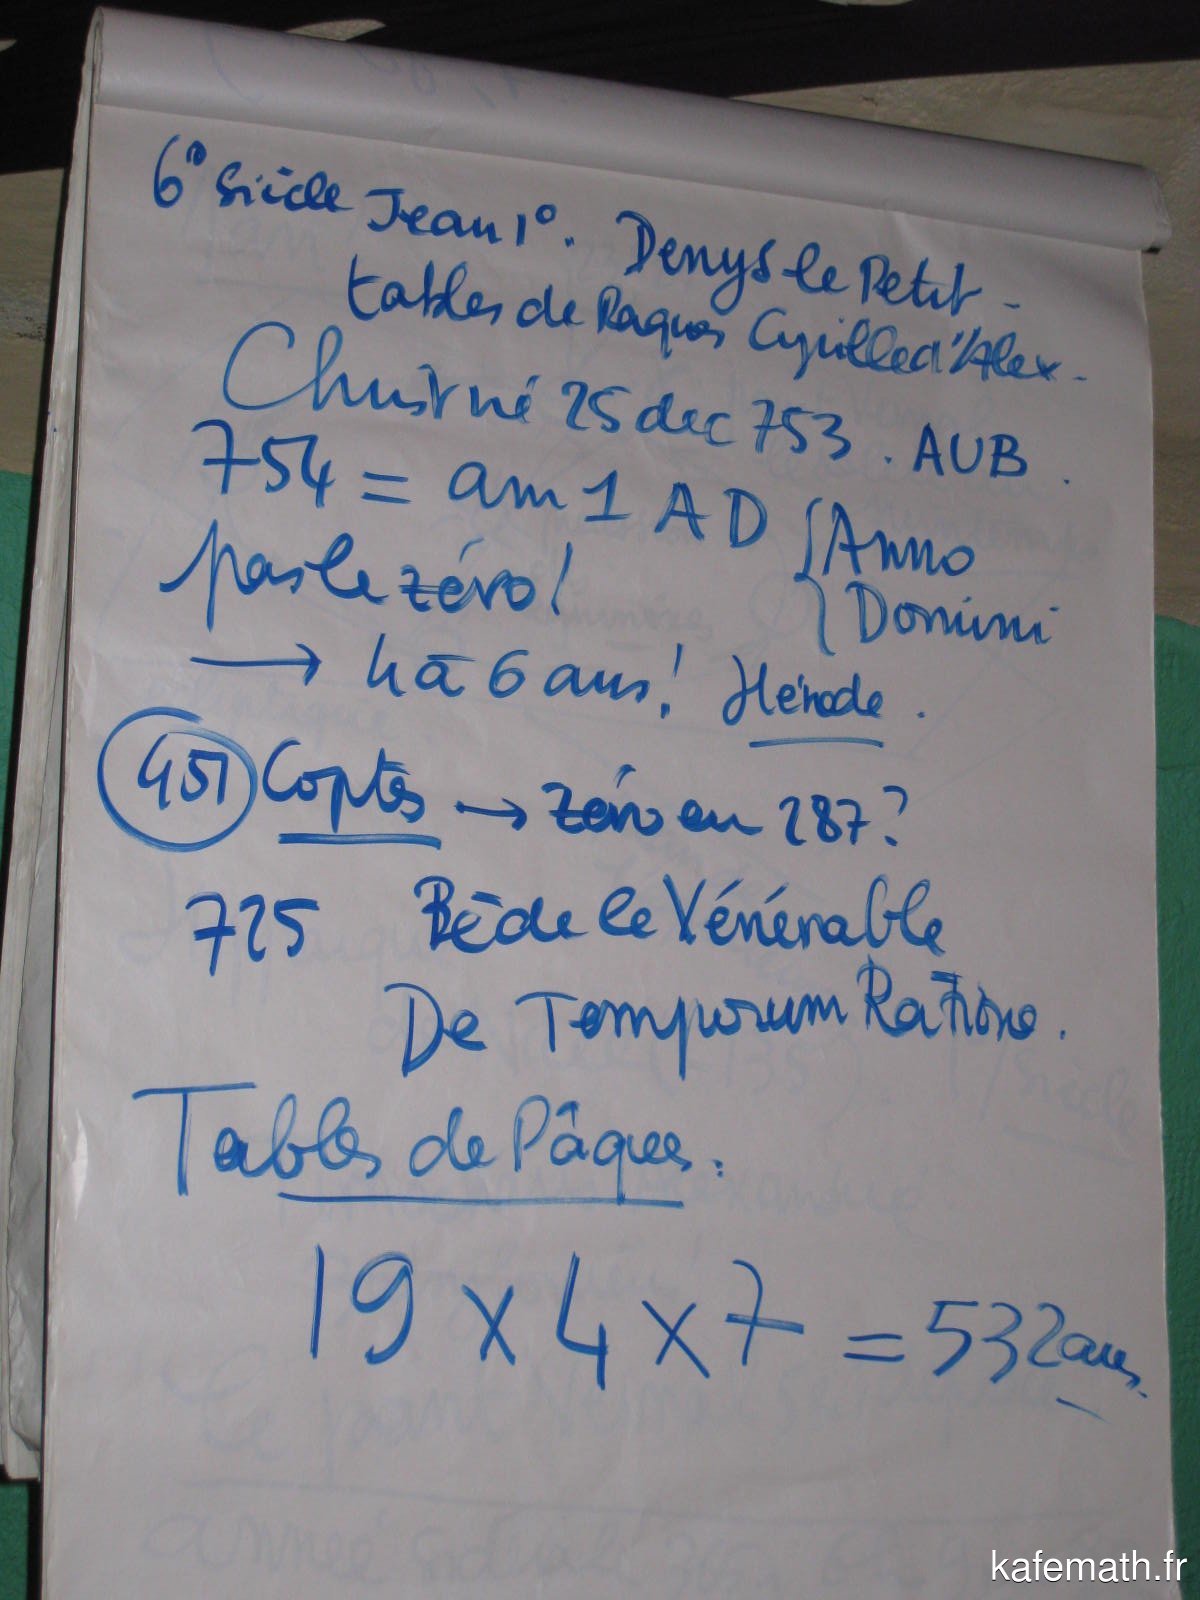 6° siècle Jean 1°. Denys le Petit -
tables de Paques Cyrille d'Alex.
Christ né 25 dec 753. AUB.
754 = an 1 AD { Anno
Domini
pas le zéro!
→ 4 à 6 ans! Hérode.
451 Coptes → zéro en 287?
725 Bède le Vénérable
De Temporum Ratione.
Tables de Pâques.
19 x 4 x 7 = 532 ans.
kafemath.fr